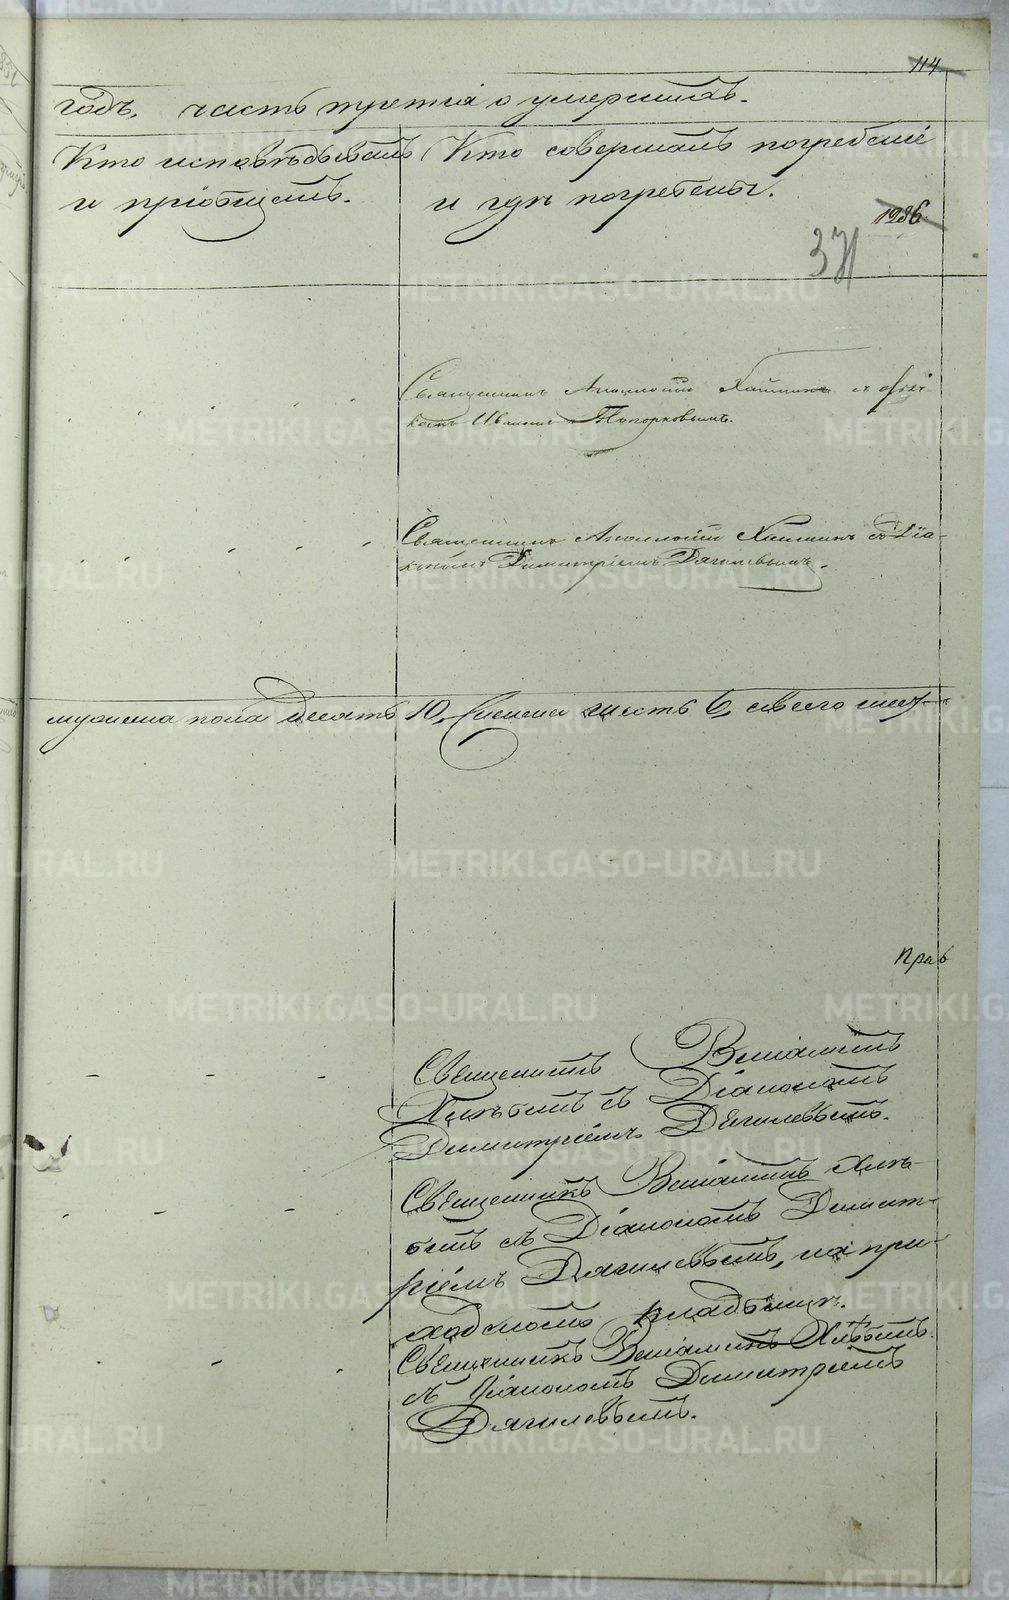 114
годъ. часть третія о умершихъ.
Кто исповѣдывалъ
и пріобщалъ.
Кто совершалъ погребеніе
и гдѣ погребены.
1286.
371
Священникъ Аполлоній
Иваномъ Топорковымъ.
Священникъ Аполлоній съ Діа-
кономъ Димитріемъ Дягилевымъ.
мужеска пола десять 10, женска шесть 6, а всего шест-
Прав
Священникъ Веніаминъ
Хлѣбинъ съ Діакономъ
Димитріемъ Дягилевымъ.
Священникъ Веніаминъ Хлѣ-
бинъ съ Діакономъ Димит-
ріемъ Дягилевымъ, на при-
ходскомъ кладбищѣ.
Священникъ Веніаминъ Хлѣбинъ
съ Діакономъ Димитріемъ
Дягилевымъ.
METRIKI.GASO-URAL.RU